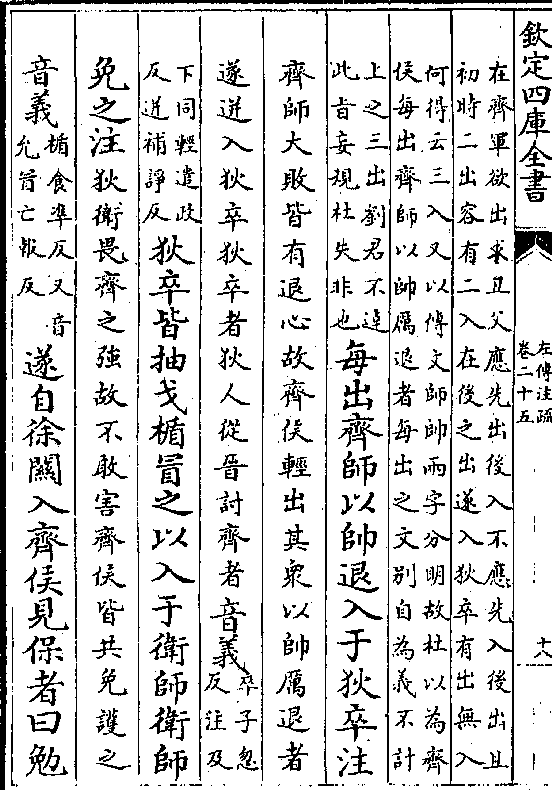 欽定四庫全書
左傳注疏
卷二十五
十八
在齊軍欲出求丑父應先出後入不應先入後出且
初時二出容有二入在後之出遂入狄卒有出無入
何得云三入又以傳文師帥兩字分明故杜以為齊
侯每出齊師以帥厲退者每出之文別自為義不計
上之三出劉君不達
此旨妄規杜失非也
每出齊師以帥退入于狄卒注
齊師大敗皆有退心故齊侯輕出其衆以帥厲退者
遂迸入狄卒狄卒者狄人從晉討齊者音義
卒子忽
反注及
下同輕遣政
反迸補諍反
狄卒皆抽戈楯冒之以入于衛師衛師
免之注狄衛畏齊之強故不敢害齊侯皆共免護之
音義
楯食準反又音
允冒亡報反
遂自徐關入齊侯見保者曰勉